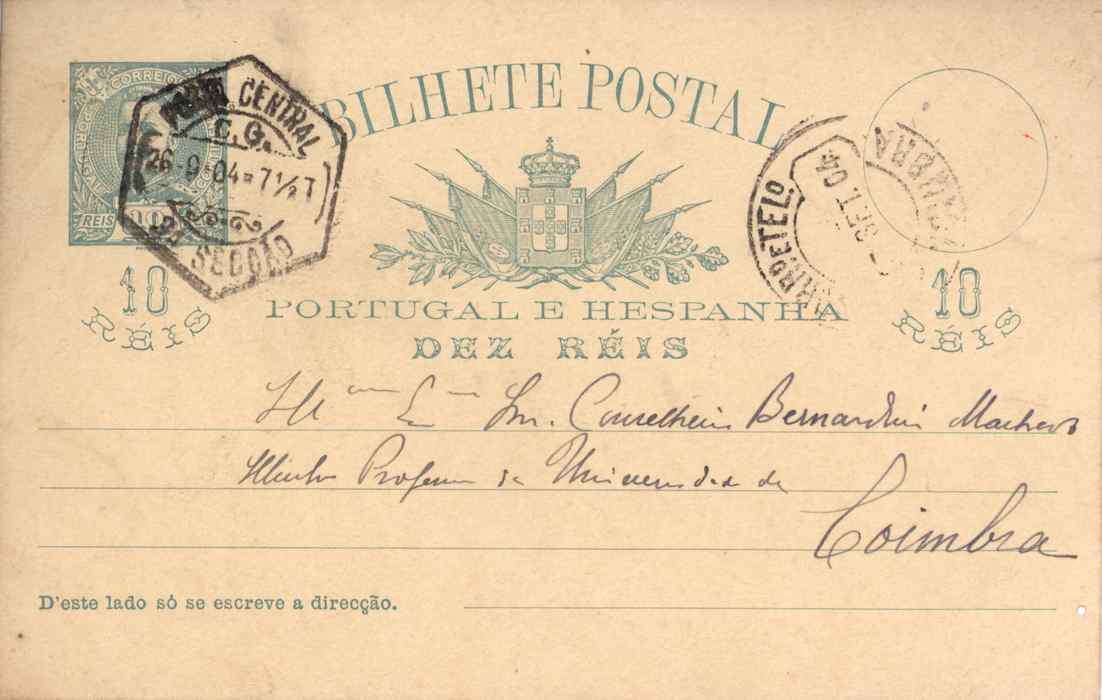 BILHETE POSTAL
CORREIO
PORTUGAL
REIS 10
CENTRAL
C.G.
26-9-04=7½T
2ª SECÇÃO
SET 04
COIMBRA
10 RÉIS
10 RÉIS
PORTUGAL E HESPANHA
DEZ RÉIS
Illmo Exmo Snr. Conselheiro Bernardino Machado
Illustre Professor da Universidade de
Coimbra
D'este lado só se escreve a direcção.